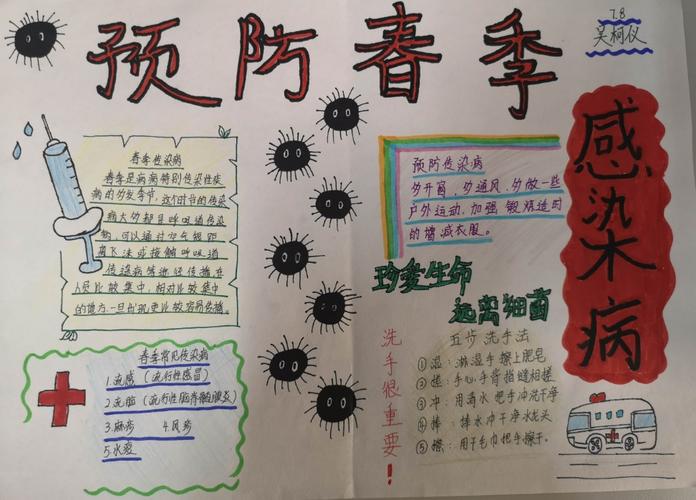 预防春季
7.8
吴柯仪
感染病
春季传染病
春季是疾病特别传染性疾
病的多发季节,这个时节的传染
病大多都是呼吸道传染
病,可以通过空气短距
离飞沫或接触呼吸道
传道病等途径传播在
人员比较集中,相对比较集中
的地方,一旦出现更比较容易传播。
预防传染病
多开窗、多通风、多做一些
户外运动,加强锻炼适时
的增减衣服。
珍爱生命
远离细菌
春季常见传染病
1.流感(流行性感冒)
2.流脑(流行性脑脊髓膜炎)
3.麻疹 4.风疹
5.水痘
洗手很重要!
五步洗手法
①湿:淋湿手擦上肥皂
②搓:手心手背指缝相搓
③冲:用清水把手冲洗干净
④捧:捧水冲干净水龙头
⑤擦:用干毛巾把手擦干。